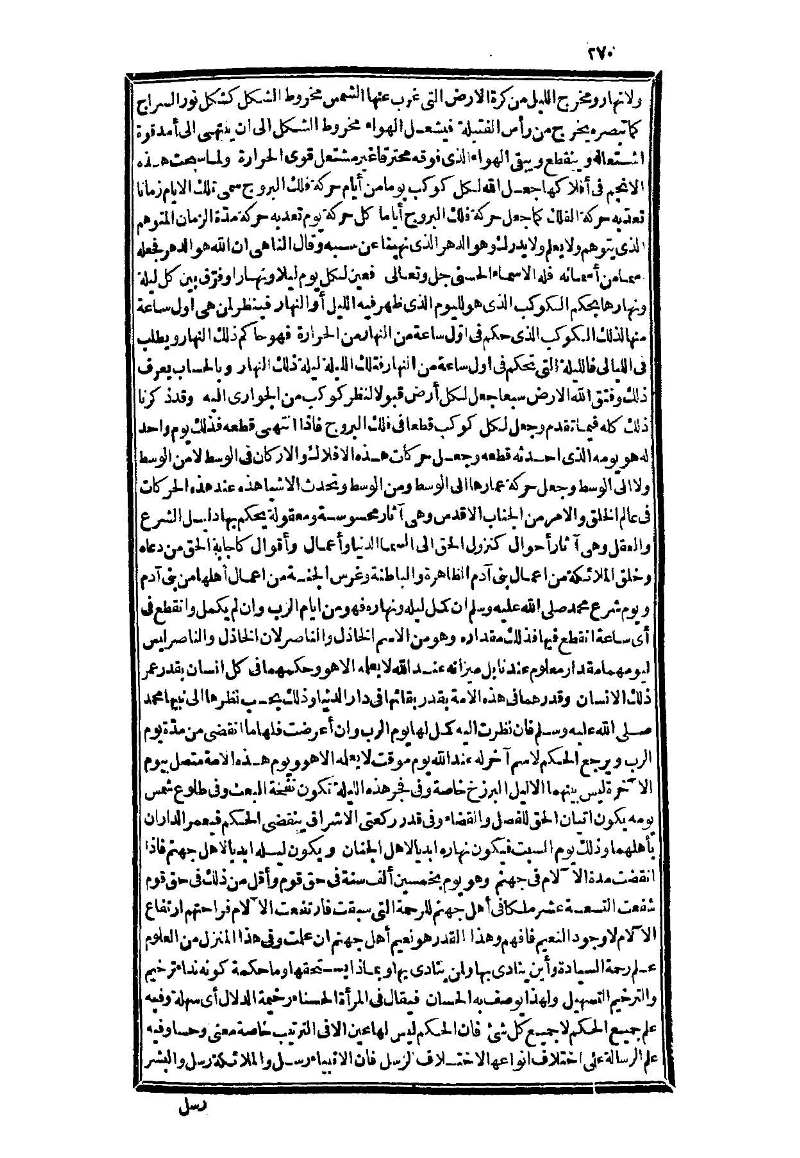 ٢٧٠
ولا نهار ومخرج الليل من كرة الارض التى غرب عنها الشمس مخروط الشكل كشكل نور السراج
كما تبصره يخرج من رأس الفتيلة فيشعل الهواء مخروط الشكل الى ان ينتهى الى أمد قوة
اشتعاله وينقطع ويبقى الهواء الذى فوقه محترقا غير مشتعل قوى الحرارة ولما سبحت هذه
الانجم فى أفلاكها جعل الله لكل كوكب يوما من أيام حركة فلك البروج سمى تلك الايام زمانا
تعد به حركة الفلك كما جعل حركة فلك البروج أياما كل حركة يوم تعد به حركة مدة الزمان المتوهم
الذى يتوهم ولا يعلم ولا يدرك وهو الدهر الذى نهينا عن سبه وقال الناهى ان الله هو الدهر فجعله
اسما من أسمائه فله الاسماء الحسنى جل وتعالى فعين لكل يوم ليلا ونهارا وفرق بين كل ليلة
ونهارها بحكم الكوكب الذى هو لليوم الذى ظهر فيه الليل أو النهار فينظر لمن هى اول ساعة
منها لذلك الكوكب الذى حكم فى اول ساعة من النهار من الحرارة فهو حاكم ذلك النهار ويطلب
فى الليالى فالليلة التى تحكم فى اول ساعة من النهار فتلك الليلة ليلة ذلك النهار وبالحساب يعرف
ذلك وفتق الله الارض سبعا جعل لكل أرض قبولا لنظر كوكب من الجوارى اليه وقد ذكرنا
ذلك كله فيما تقدم وجعل لكل كوكب قطعا فى فلك البروج فاذا انتهى قطعه فذلك يوم واحد
له هو يومه الذى احدثه قطعه وجعل حركات هذه الافلاك والاركان فى الوسط لا من الوسط
ولا الى الوسط وجعل حركة عمارها الى الوسط ومن الوسط وتحدث الاشياء هذه عند هذه الحركات
فى عالم الخلق والامر من الجناب الاقدس وهى آثار محسوسة ومعقولة يحكم بها دليل الشرع
والعقل وهى آثار أحوال كنزول الحق الى السماء الدنيا وأعمال وأقوال كاجابة الحق من دعاه
وخلق الملائكة من اعمال بنى آدم الظاهرة والباطنة وغرس الجنة من اعمال أهلها من بنى آدم
ويوم شرع محمد صلى الله عليه وسلم ان كمل ليله ونهاره فهو من ايام الرب وان لم يكمل وانقطع فى
أى ساعة انقطع فيها فذلك مقداره وهو من الاسم الخاذل والناصر لان الخاذل والناصر ليس
ليومهما مقدار معلوم عندنا بل ميزانه عند الله لا يعلمه الا هو وحكمهما فى كل انسان بقدر عمر
ذلك الانسان وقدرهما فى هذه الامة بقدر بقائها فى دار الدنيا وذلك بحسب نظرها الى نبيها محمد
صلى الله عليه وسلم فان نظرت اليه كمل لها يوم الرب وان أعرضت فلها ما انقضى من مدة يوم
الرب ويرجع الحكم لاسم آخر له عند الله يوم موقت لا يعلمه الا هو ويوم هذه الامة متصل بيوم
الآخرة ليس بينهما الا ليل البرزخ خاصة وفى فجر هذه الليلة تكون نفخة البعث وفى طلوع شمس
يومه يكون اتيان الحق للفصل والقضاء وفى قدر ركعتى الاشراق ينقضى الحكم فيعمر الداران
بأهلهما وذلك يوم السبت فيكون نهاره ابديا لاهل الجنان ويكون ليله ابديا لاهل جهنم فاذا
انقضت مدة الآلام فى جهنم وهو يوم بخمسين ألف سنة فى حق قوم وأقل من ذلك فى حق قوم
شفعت التسعة عشر ملكا فى أهل جهنم للرحمة التى سبقت فارتفعت الآلام فراحتهم ارتفاع
الآلام لا وجود النعيم فافهم وهذا القدر هو نعيم أهل جهنم ان علمت وفى هذا المنزل من العلوم
علم رحمة السيادة وأين ينادى بها ولمن ينادى بها وبماذا يستحقها وما حكمة كونه نداء ترخيم
والترخيم التسهيل ولهذا يوصف به الحسان فيقال فى المرأة الحسناء رخيمة الدلال أى سهلة وفيه
علم جميع الحكم لا جميع كل شئ فان الحكم ليس لها عين الا فى الترتيب خاصة معنى وحسا وفيه
علم الرسالة على اختلاف انواعها لاختلاف الرسل فان الانبياء رسل والملائكة رسل والبشر
رسل